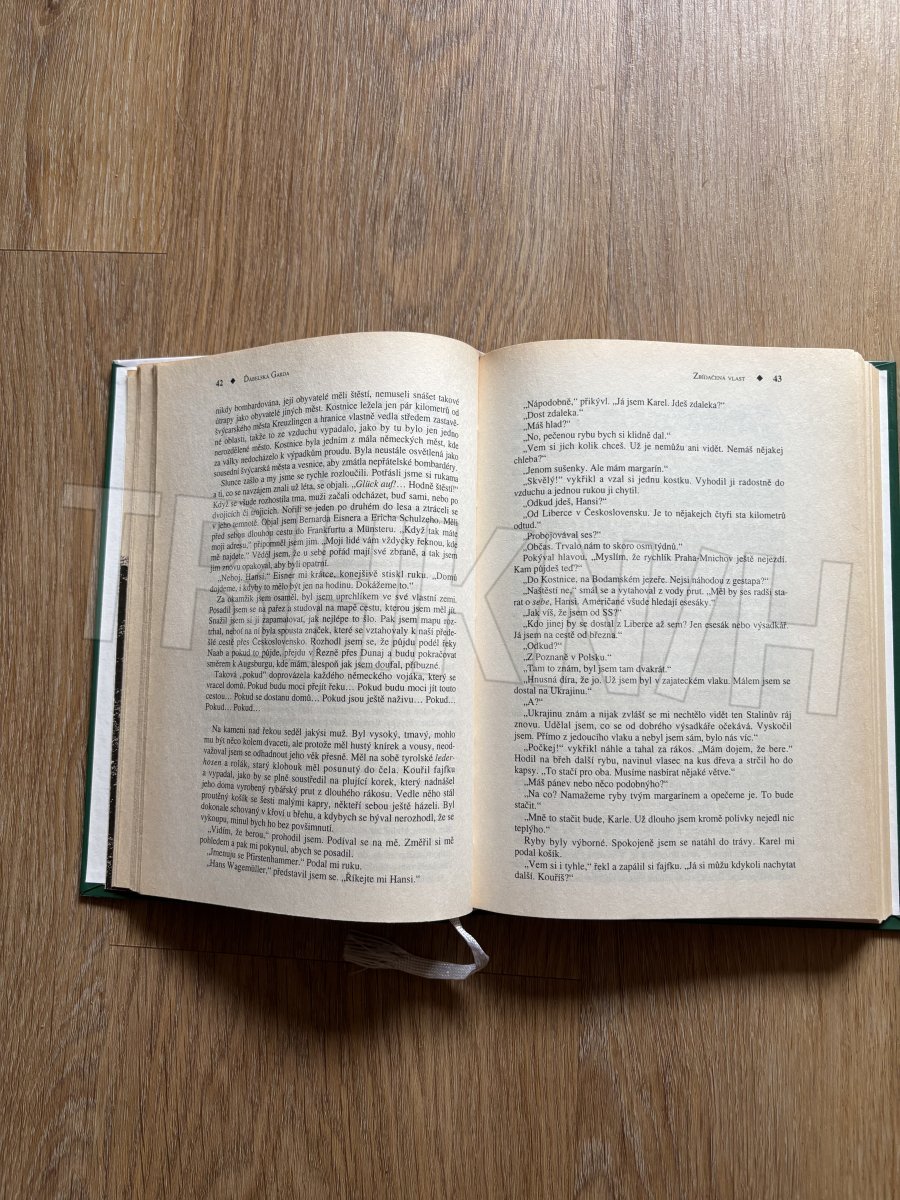 42 ◆ Ďábelská Garda
nikdy bombardována, její obyvatelé měli štěstí, nemuseli snášet takové
útrapy jako obyvatelé jiných měst. Kostnice ležela jen pár kilometrů od
švýcarského města Kreuzlingen a hranice vlastně vedla středem zastavě-
né oblasti, takže to ze vzduchu vypadalo, jako by tu bylo jen jedno
nerozdělené město. Kostnice byla jedním z mála německých měst, kde
za války nedocházelo k výpadkům proudu. Byla neustále osvětlená jako
sousední švýcarská města a vesnice, aby zmátla nepřátelské bombardéry.
Slunce zašlo a my jsme se rychle rozloučili. Potřásli jsme si rukama
a ti, co se navzájem znali už léta, se objali. „Glück auf!… Hodně štěstí!“
Když se všude rozhostila tma, muži začali odcházet, buď sami, nebo po
dvojicích či trojicích. Nořili se jeden po druhém do lesa a ztráceli se
v jeho temnotě. Objal jsem Bernarda Eisnera a Ericha Schulzeho. Měli
před sebou dlouhou cestu do Frankfurtu a Münsteru. „Když tak máte
moji adresu,“ připomněl jsem jim. „Moji lidé vám vždycky řeknou, kde
mě najdete.“ Věděl jsem, že u sebe pořád mají své zbraně, a tak jsem
jim znovu opakoval, aby byli opatrní.
„Neboj, Hansi.“ Eisner mi krátce, konejšivě stiskl ruku. „Domů
dojdeme, i kdyby to mělo být jen na hodinu. Dokážeme to.“
Za okamžik jsem osaměl, byl jsem uprchlíkem ve své vlastní zemi.
Posadil jsem se na pařez a studoval na mapě cestu, kterou jsem měl jít.
Snažil jsem si ji zapamatovat, jak nejlépe to šlo. Pak jsem mapu roz-
trhal, neboť na ní byla spousta značek, které se vztahovaly k naší přede-
šlé cestě přes Československo. Rozhodl jsem se, že půjdu podél řeky
Naab a pokud to půjde, přejdu v Řezně přes Dunaj a budu pokračovat
směrem k Augsburgu, kde mám, alespoň jak jsem doufal, příbuzné.
Taková „pokud“ doprovázela každého německého vojáka, který se
vracel domů. Pokud budu moci přejít řeku… Pokud budu moci jít touto
cestou… Pokud se dostanu domů… Pokud jsou ještě naživu… Pokud…
Pokud… Pokud…
Na kameni nad řekou seděl jakýsi muž. Byl vysoký, tmavý, mohlo
mu být něco kolem dvaceti, ale protože měl hustý knírek a vousy, neod-
važoval jsem se odhadnout jeho věk přesně. Měl na sobě tyrolské leder-
hosen a rolák, starý klobouk měl posunutý do čela. Kouřil fajfku
a vypadal, jako by se plně soustředil na plující korek, který nadnášel
doma vyrobený rybářský prut z dlouhého rákosu. Vedle něho stál
proutěný košík se šesti malými kapry, někteří sebou ještě házeli. Byl
dokonale schovaný v křoví u břehu, a kdybych se býval nerozhodl, že se
vykoupu, minul bych ho bez povšimnutí.
„Vidím, že berou,“ prohodil jsem. Podíval se na mě. Změřil si mě
pohledem a pak mi pokynul, abych se posadil.
„Jmenuju se Pfirstenhammer.“ Podal mi ruku.
„Hans Wagemüller,“ představil jsem se. „Říkejte mi Hansi.“
Zbídačená vlast ◆ 43
„Nápodobně,“ přikývl. „Já jsem Karel. Jdeš zdaleka?“
„Dost zdaleka.“
„Máš hlad?“
„No, pečenou rybu bych si klidně dal.“
„Vem si jich kolik chceš. Už je nemůžu ani vidět. Nemáš nějakej
chleba?“
„Jenom sušenky. Ale mám margarín.“
„Skvělý!“ vykřikl a vzal si jednu kostku. Vyhodil ji radostně do
vzduchu a jednou rukou ji chytil.
„Odkud jdeš, Hansi?“
„Od Liberce v Československu. Je to nějakejch čtyři sta kilometrů
odtud.“
„Probojovával ses?“
„Občas. Trvalo nám to skoro osm týdnů.“
Pokýval hlavou. „Myslím, že rychlík Praha-Mnichov ještě nejezdí.
Kam půjdeš teď?“
„Do Kostnice, na Bodamském jezeře. Nejsi náhodou z gestapa?“
„Naštěstí ne,“ smál se a vytahoval z vody prut. „Měl by ses radši sta-
rat o sebe, Hansi. Američané všude hledají esesáky.“
„Jak víš, že jsem od SS?“
„Kdo jinej by se dostal z Liberce až sem? Jen esesák nebo výsadkář.
Já jsem na cestě od března.“
„Odkud?“
„Z Poznaně v Polsku.“
„Tam to znám, byl jsem tam dvakrát.“
„Hnusná díra, že jo. Už jsem byl v zajateckém vlaku. Málem jsem se
dostal na Ukrajinu.“
„A?“
„Ukrajinu znám a nijak zvlášť se mi nechtělo vidět ten Stalinův ráj
znovu. Udělal jsem, co se od dobrého výsadkáře očekává. Vyskočil
jsem. Přímo z jedoucího vlaku a nebyl jsem sám, bylo nás víc.“
„Počkej!“ vykřikl náhle a tahal za rákos. „Mám dojem, že bere.“
Hodil na břeh další rybu, navinul vlasec na kus dřeva a strčil ho do
kapsy. „To stačí pro oba. Musíme nasbírat nějaké větve.“
„Máš pánev nebo něco podobnýho?“
„Na co? Namažeme ryby tvým margarínem a opečeme je. To bude
stačit.“
„Mně to stačit bude, Karle. Už dlouho jsem kromě polívky nejedl nic
teplýho.“
Ryby byly výborné. Spokojeně jsem se natáhl do trávy. Karel mi
podal košík.
„Vem si i tyhle,“ řekl a zapálil si fajfku. „Já si můžu kdykoli nachytat
další. Kouříš?“